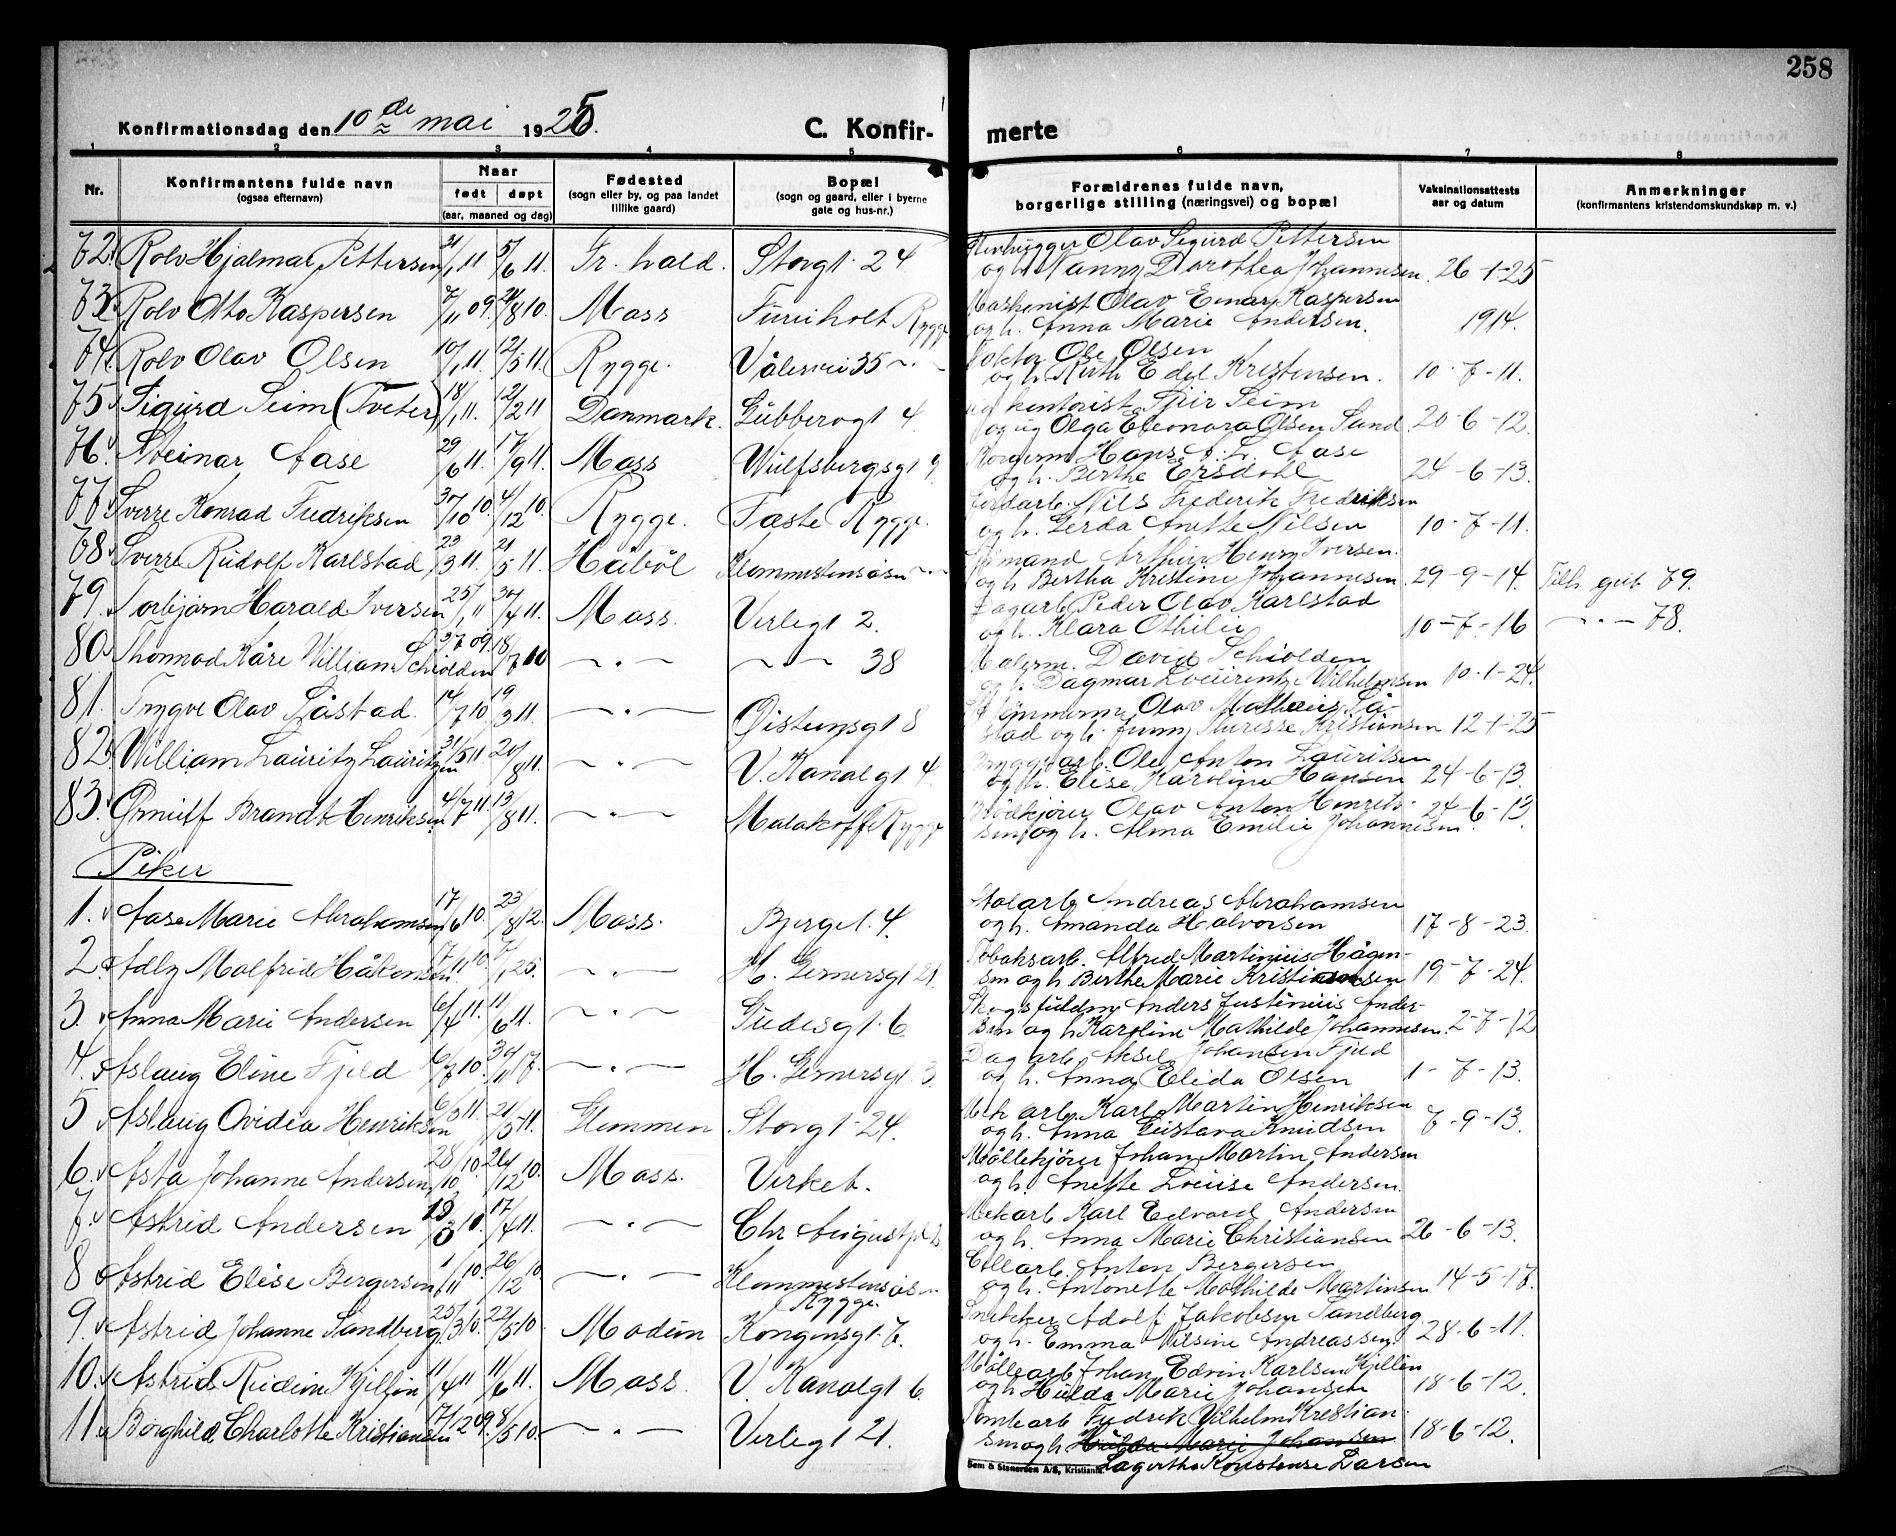 258
Konfirmationsdag den 10de mai 1925.
C. Konfir-
merte
1 2 3 4 5 6 7 8
Nr.
Konfirmantens fulde navn
(ogsaa efternavn)
Naar
født døpt
(aar, maaned og dag)
Fødested
(sogn eller by, og paa landet
tillike gaard)
Bopæl
(sogn og gaard, eller i byerne
gate og hus-nr.)
Forældrenes fulde navn,
borgerlige stilling (næringsvei) og bopæl
Vaksinationsattests
aar og datum
Anmerkninger
(konfirmantens kristendomskundskap m. v.)
72. Rolv Hjalmar Pettersen 21/1 11 5/6 11. Fr. hald. Storgt. 24 Stenhugger Olav Sigurd Pettersen
og h. Nanny Dorothea Johannesen. 26-1-25
73. Rolv Otto Kaspersen 7/11 09. 28/8 10. Moss Fureholt Rygge Maskinist Olav Einar Kaspersen
og h. Anna Marie Andersen. 1914.
74. Rolv Olav Olsen 10/1 11. 12/5 11. Rygge. Vålervei 35 Ole Olsen
og h. Ruth Edel Kristensen. 10-7-11.
75. Sigurd Seim (Tveter) 18/1 11. 12/2 11 Danmark. Gubberogt 4. Seim
og ug Olga Eleonora Olsen Sund. 20-6-12.
76. Steinar Aase 29/6 11. 17/9 11. Moss Wulfsbergsgt 9 Hans Aase
og h. Berthe Ersdahl 24-6-13.
77. Sverre Konrad Fredriksen 30/10 10. 4/12 10. Rygge. Faste Rygge. Jordarb. Nils Frederik Fredriksen
og h. Gerda Anette Nilsen 10-7-11.
78. Sverre Rudolf Karlstad 23/3 11. 21/5 11. Håbøl Klommestensåsen Sjømand Arthur Henry Iversen.
og h. Bertha Kristine Johannesen 29-9-14. Tilh gut 79.
79. Torbjørn Harald Iversen 25/1 11 30/4 11. Moss. Verlegt 2. Dagarb. Peder Olav Karlstad
og h. Klara Othilie 10-7-16 78.
80. Thormod Kåre William Schiolden 27 09. 18/7 10 38 Malerm. David Schiolden
og h. Dagmar Lourentze Wilhelmsen 10.1-24.
81. Trygve Olav Såstad. 14/7 10. 19/3 11. Øistensgt 8 Olav Matheus Så-
stad og h. Jenny Therese Kristiansen 12-1-25
82. William Lauritz Lauritzen 31/5 11. 20/8 11. V. Kanalgt 4. Bryggearb. Ole Anton Lauritsen
og h. Elise Karoline Hansen 24-6-13.
83. Ørnulf Brandt Henriksen 4/7 11. 13/8 11. Malakoff Rygge Brødkjører Olav Anton Henrik-
sen og h. Alma Emilie Johannesen. 24-6-13
Piker
1. Aase Marie Abrahamsen 17/6 10. 23/8 12. Moss. Bjerget. 4. Andreas Abrahamsen
og h. Amanda Halvorsen 17-8-23.
2. Adly Malfrid Håkensen 7/11 10. 7/1 25. H. Gernersgt 21. Tobaksarb. Alfred Martinius Hågen-
sen og h Berthe Marie Kristiansen 19-7-24.
3. Anna Marie Andersen 6/4 11. 11/6 11. Gudesgt. 6 Skogsfuldm. Anders Justinius Ander-
sen og h Karoline Mathilde Johannesen. 2-7-12
4. Aslaug Eline Fjeld 6/7 10. 30/11 17. H. Gernersgt. 3 Dagarb. Aksel Johansen Fjeld
og h. Anna Elida Olsen 1-7-13.
5 Aslaug Ovidia Henriksen 6/3 11. 21/5-11. Glemmen Storgt-24. Mek arb. Karl Martin Henriksen
og h. Anna Gustava Knudsen 7-9-13.
6. Asta Johanne Andersen 28/10 10. 26/12 10. Moss. Verket. Møllekjører Johan Martin Andersen
og h. Anette Louise Andersen.
7. Astrid Andersen 19/3 10. 17/4 11. Chr Augustpl Mekarb Karl Edvard Andersen
og h. Anna Marie Christiansen 26-6-13.
8 Astrid Elise Bergersen 1/11 10. 26/12 10 Klommestensåsen
Rygge. Anton Bergersen
og h. Antonette Mathilde Martinsen 14-5-17.
9. Astrid Johanne Sandberg. 25/3 10. 22/5 10. Modum Kongensgt. 7. Snekker Adolf Jakobsen Sandberg.
og h. Emma Nilsine Andreassen. 28-6-11.
10. Astrid Reidun Kjellén 11/4 11 11/6 11. Moss. V. Kanalgt 6. Møllearb Johan Edvin Karlsen Kjellén
og h Hulda Marie Johansen 18-6-12.
11. Borghild Charlotte Kristiansen 17/12 09. 8/5 10. Verlegt 21. Tomtearb Fredrik Vilhelm Kristian-
sen og h Hulda Marie Johansen 18-6-12.
Sem & Stenersen A/S, Kristiania Lagertha Konstanse Larsen